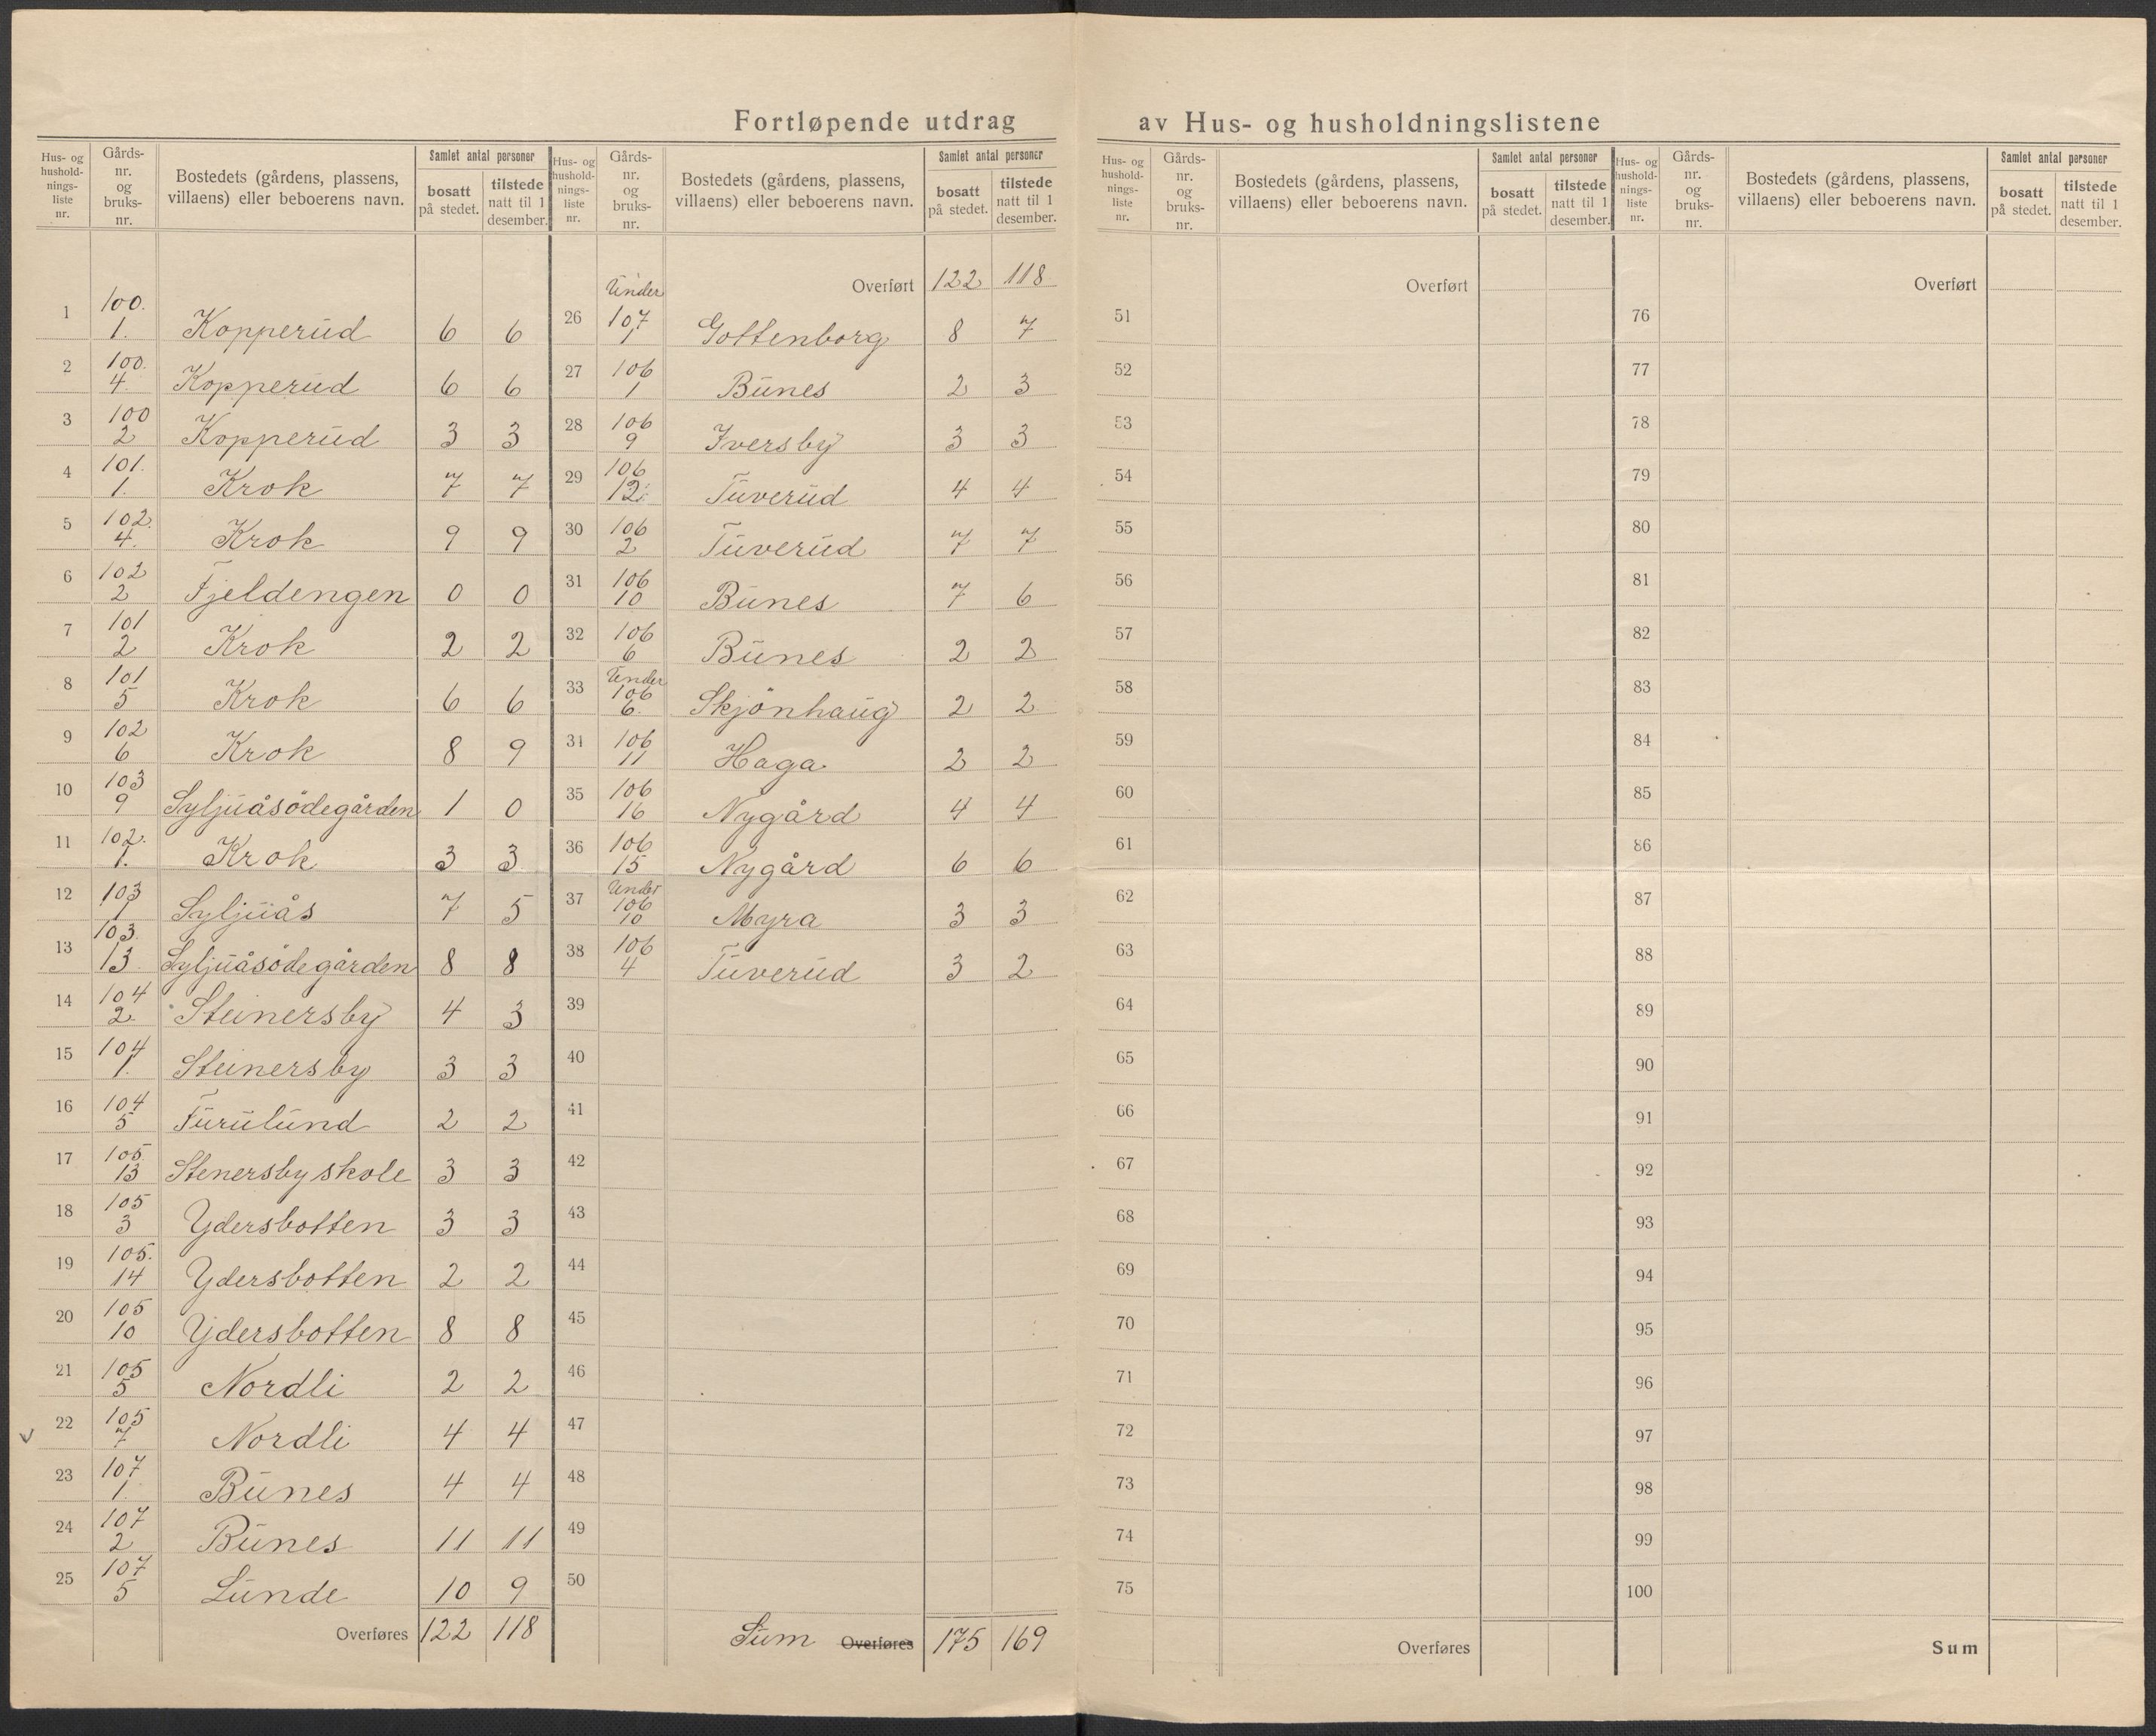 Fortløpende utdrag av Hus- og husholdningslistene
Hus- og hushold-nings-liste nr. Gårds-nr. og bruks-nr. Bostedets (gårdens, plassens, villaens) eller beboerens navn. Samlet antal personer bosatt på stedet. tilstede natt til 1 desember.
1 100. 1. Kopperud 6 6
2 100. 4. Kopperud 6 6
3 100 2 Kopperud 3 3
4 101. 1. Krok 7 7
5 102. 4. Krok 9 9
6 102 2 Fjeldengen 0 0
7 101 2 Krok 2 2
8 101 5 Krok 6 6
9 102 6 Krok 8 9
10 103 9 Syljuåsödegården 1 0
11 102. 1. Krok 3 3
12 103 1 Syljuås 7 5
13 103. 13 Syljuåsödegården 8 8
14 104 2. Steinersby 4 3
15 104 1. Steinersby 3 3
16 104 5 Furulund 2 2
17 105. 13 Stenersby skole 3 3
18 105 3 Ydersbotten 3 3
19 105. 14 Ydersbotten 2 2
20 105 10 Ydersbotten 8 8
21 105 5 Nordli 2 2
22 105 7 Nordli 4 4
23 107 1. Bunes 4 4
24 107 2 Bunes 11 11
25 107 5 Lunde 10 9
Overføres 122 118
Hus- og hushold-nings-liste nr. Gårds-nr. og bruks-nr. Bostedets (gårdens, plassens, villaens) eller beboerens navn. Samlet antal personer bosatt på stedet. tilstede natt til 1 desember.
Overført 122 118
26 Under 107 1 Gottenborg 8 7
27 106 1 Bunes 2 3
28 106 9 Iversby 3 3
29 106 12. Tuverud 4 4
30 106 2 Tuverud 7 7
31 106 10 Bunes 7 6
32 106 6 Bunes 2 2
33 Under 106 6. Skjönhaug 2 2
34 106 11 Haga 2 2
35 106 16 Nygård 4 4
36 106 15 Nygård 6 6
37 Under 106 10 Myra 3 3
38 106 4 Tuverud 3 2
39
40
41
42
43
44
45
46
47
48
49
50
Sum Overføres 175 169
Hus- og hushold-nings-liste nr. Gårds-nr. og bruks-nr. Bostedets (gårdens, plassens, villaens) eller beboerens navn. Samlet antal personer bosatt på stedet. tilstede natt til 1 desember.
Overført
51
52
53
54
55
56
57
58
59
60
61
62
63
64
65
66
67
68
69
70
71
72
73
74
75
Overføres
Hus- og hushold-nings-liste nr. Gårds-nr. og bruks-nr. Bostedets (gårdens, plassens, villaens) eller beboerens navn. Samlet antal personer bosatt på stedet. tilstede natt til 1 desember.
Overført
76
77
78
79
80
81
82
83
84
85
86
87
88
89
90
91
92
93
94
95
96
97
98
99
100
Sum